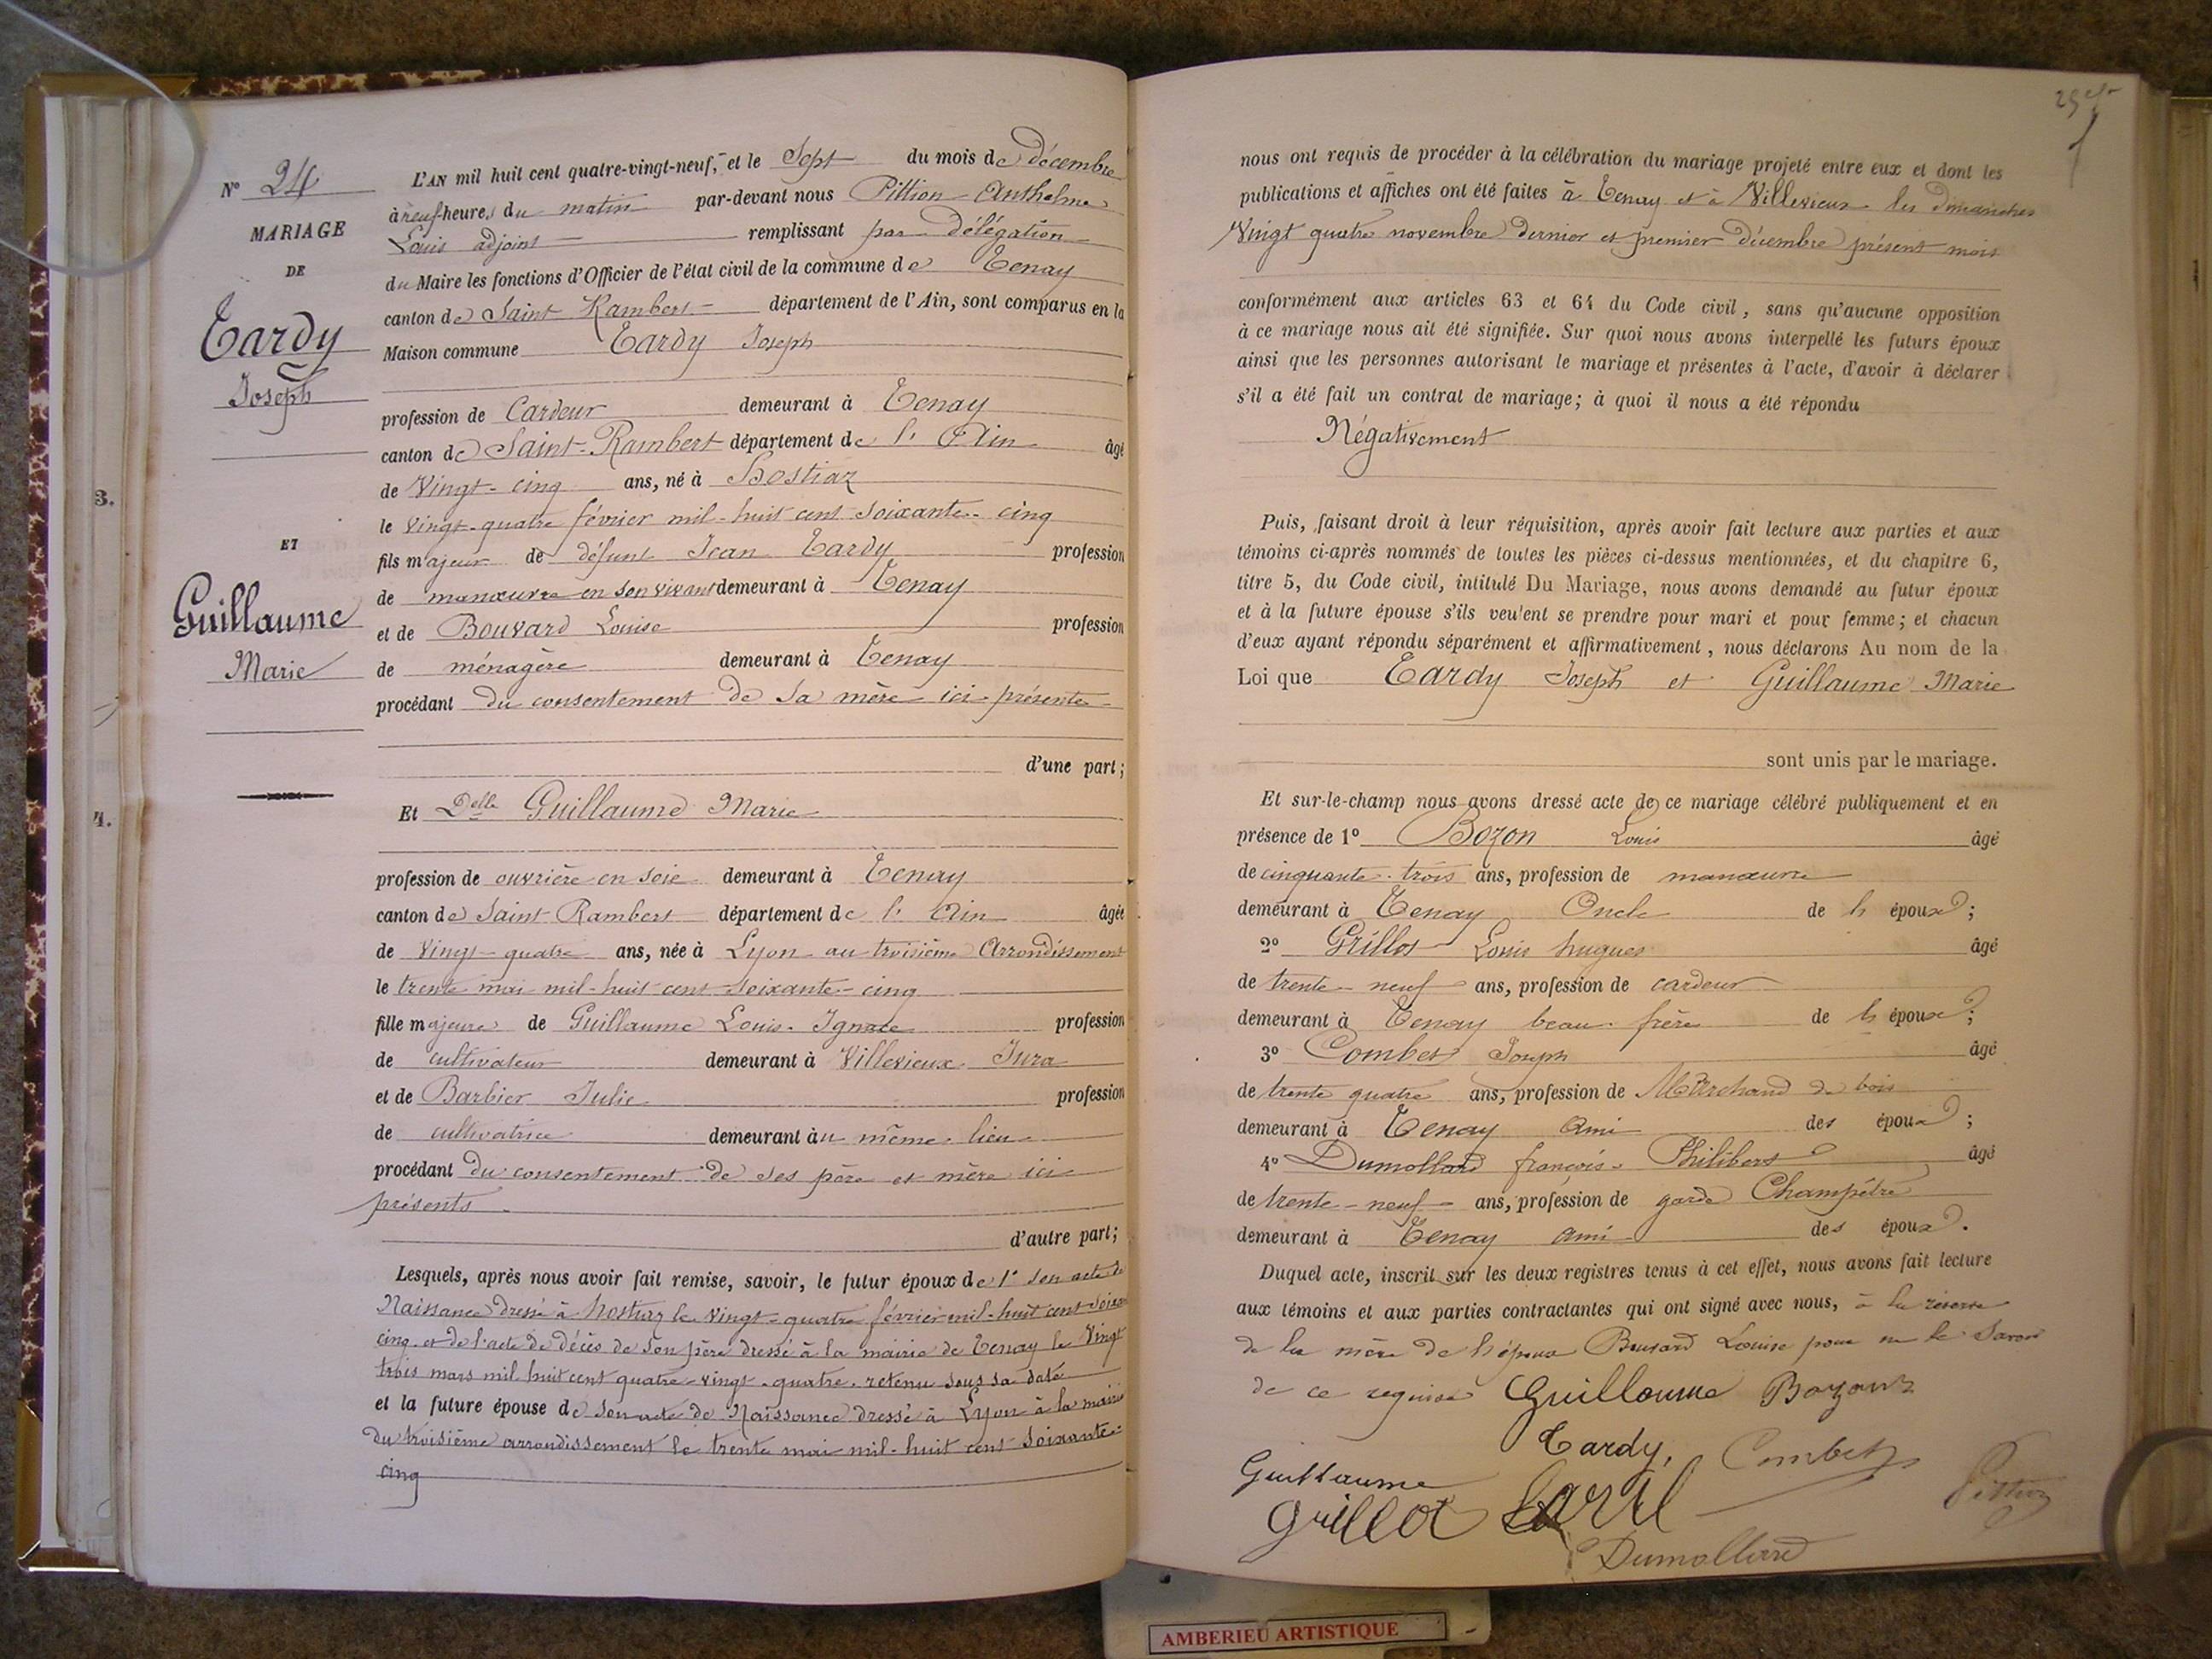 N° 24
MARIAGE
DE
Tardy
Joseph
ET
Guillaume
Marie
3.
4.
L'AN mil huit cent quatre-vingt-neuf, et le Sept du mois de décembre
à neuf heures du matin par-devant nous Pittion Anthelme
Louis adjoint remplissant par délégation
du Maire les fonctions d'Officier de l'état civil de la commune de Tenay
canton de Saint Rambert département de l'Ain, sont comparus en la
Maison commune Tardy Joseph
profession de Cardeur demeurant à Tenay
canton de Saint-Rambert département de l'Ain âgé
de Vingt-cinq ans, né à Hostiaz
le vingt-quatre février mil-huit cent soixante-cinq
fils majeur de défunt Jean Tardy profession
de manœuvre en son vivant demeurant à Tenay
et de Bouvard Louise profession
de ménagère demeurant à Tenay
procédant du consentement de sa mère ici présente
d'une part;
Et Delle Guillaume Marie
profession de ouvrière en soie demeurant à Tenay
canton de Saint Rambert département de l'Ain âgée
de vingt-quatre ans, née à Lyon au troisième Arrondissement
le trente mai mil-huit cent soixante-cinq
fille majeure de Guillaume Louis-Ignace profession
de cultivateur demeurant à Villevieux Jura
et de Barbier Julie profession
de cultivatrice demeurant au même lieu
procédant du consentement de ses père et mère ici
présents
d'autre part;
Lesquels, après nous avoir fait remise, savoir, le futur époux de 1° son acte de
Naissance dressé à hostiaz le vingt-quatre février mil-huit cent soixante
cinq et de l'acte de décès de son père dressé à la mairie de Tenay le Vingt
trois mars mil huit cent quatre-vingt-quatre retenu sous sa date
et la future épouse de son acte de Naissance dressé à Lyon à la mairie
du troisième arrondissement le trente mai mil-huit cent soixante-
cinq
nous ont requis de procéder à la célébration du mariage projeté entre eux et dont les
publications et affiches ont été faites à Tenay et à Villevieux les dimanches
Vingt quatre novembre dernier et premier décembre présent mois
conformément aux articles 63 et 64 du Code civil, sans qu'aucune opposition
à ce mariage nous ait été signifiée. Sur quoi nous avons interpellé les futurs époux
ainsi que les personnes autorisant le mariage et présentes à l'acte, d'avoir à déclarer
s'il a été fait un contrat de mariage; à quoi il nous a été répondu
Négativement
Puis, faisant droit à leur réquisition, après avoir fait lecture aux parties et aux
témoins ci-après nommés de toutes les pièces ci-dessus mentionnées, et du chapitre 6,
titre 5, du Code civil, intitulé Du Mariage, nous avons demandé au futur époux
et à la future épouse s'ils veulent se prendre pour mari et pour femme; et chacun
d'eux ayant répondu séparément et affirmativement, nous déclarons Au nom de la
Loi que Tardy Joseph et Guillaume Marie
sont unis par le mariage.
Et sur-le-champ nous avons dressé acte de ce mariage célébré publiquement et en
présence de 1° Bozon Louis âgé
de cinquante-trois ans, profession de manœuvre
demeurant à Tenay Oncle de l'époux;
2° Grillot Louis hugues âgé
de trente-neuf ans, profession de cardeur
demeurant à Tenay beau-frère de l'époux;
3° Combet Joseph âgé
de trente quatre ans, profession de Marchand de bois
demeurant à Tenay Ami des époux;
4° Dumollard françois-Philibert âgé
de trente-neuf ans, profession de garde Champêtre
demeurant à Tenay ami des époux.
Duquel acte, inscrit sur les deux registres tenus à cet effet, nous avons fait lecture
aux témoins et aux parties contractantes qui ont signé avec nous, à la réserve
de la mère de l'époux Bouvard Louise pour ne le savoir
de ce requise Guillaume Bozon
Tardy, Combet
Guillaume Pittion
Grillot
Dumollard
AMBERIEU ARTISTIQUE